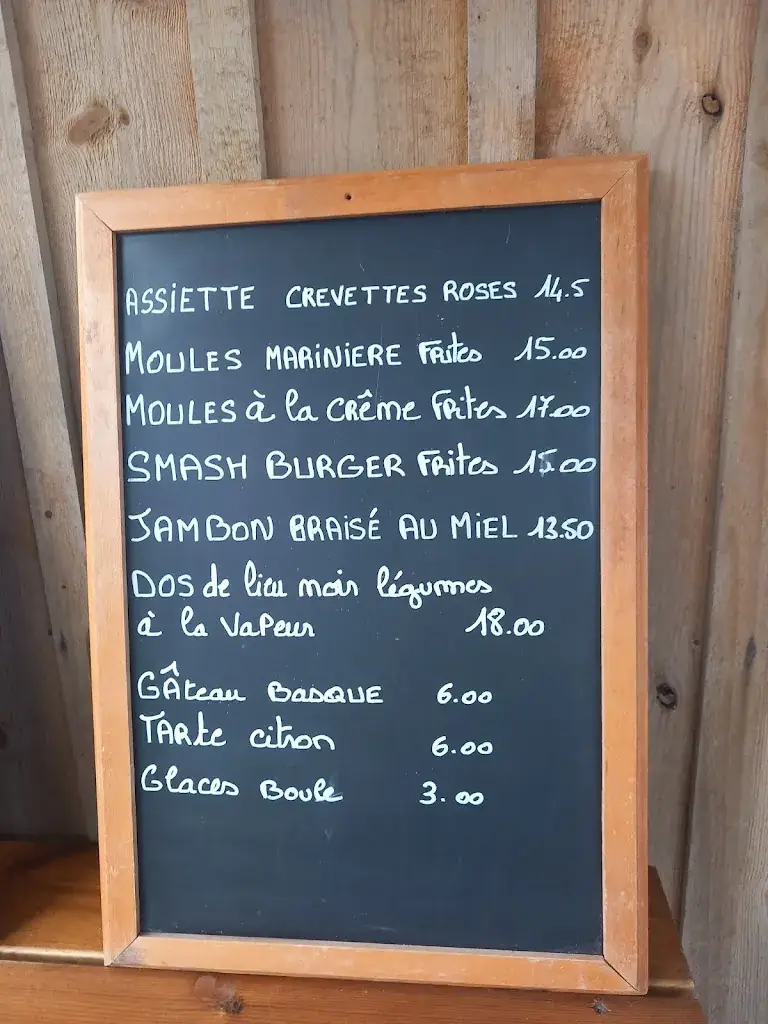 ASSIETTE CREVETTES ROSES 14.5
MOULES MARINIERE FRites 15.00
MOULES à la CRÊME FRites 17.00
SMASH BURGER FRites 15.00
JAMBON BRAISÉ AU MIEL 13.50
DOS de lieu noir légumes
à la VaPeur 18.00
GÂteau BASQUE 6.00
TARte citron 6.00
Glaces Boule 3.00